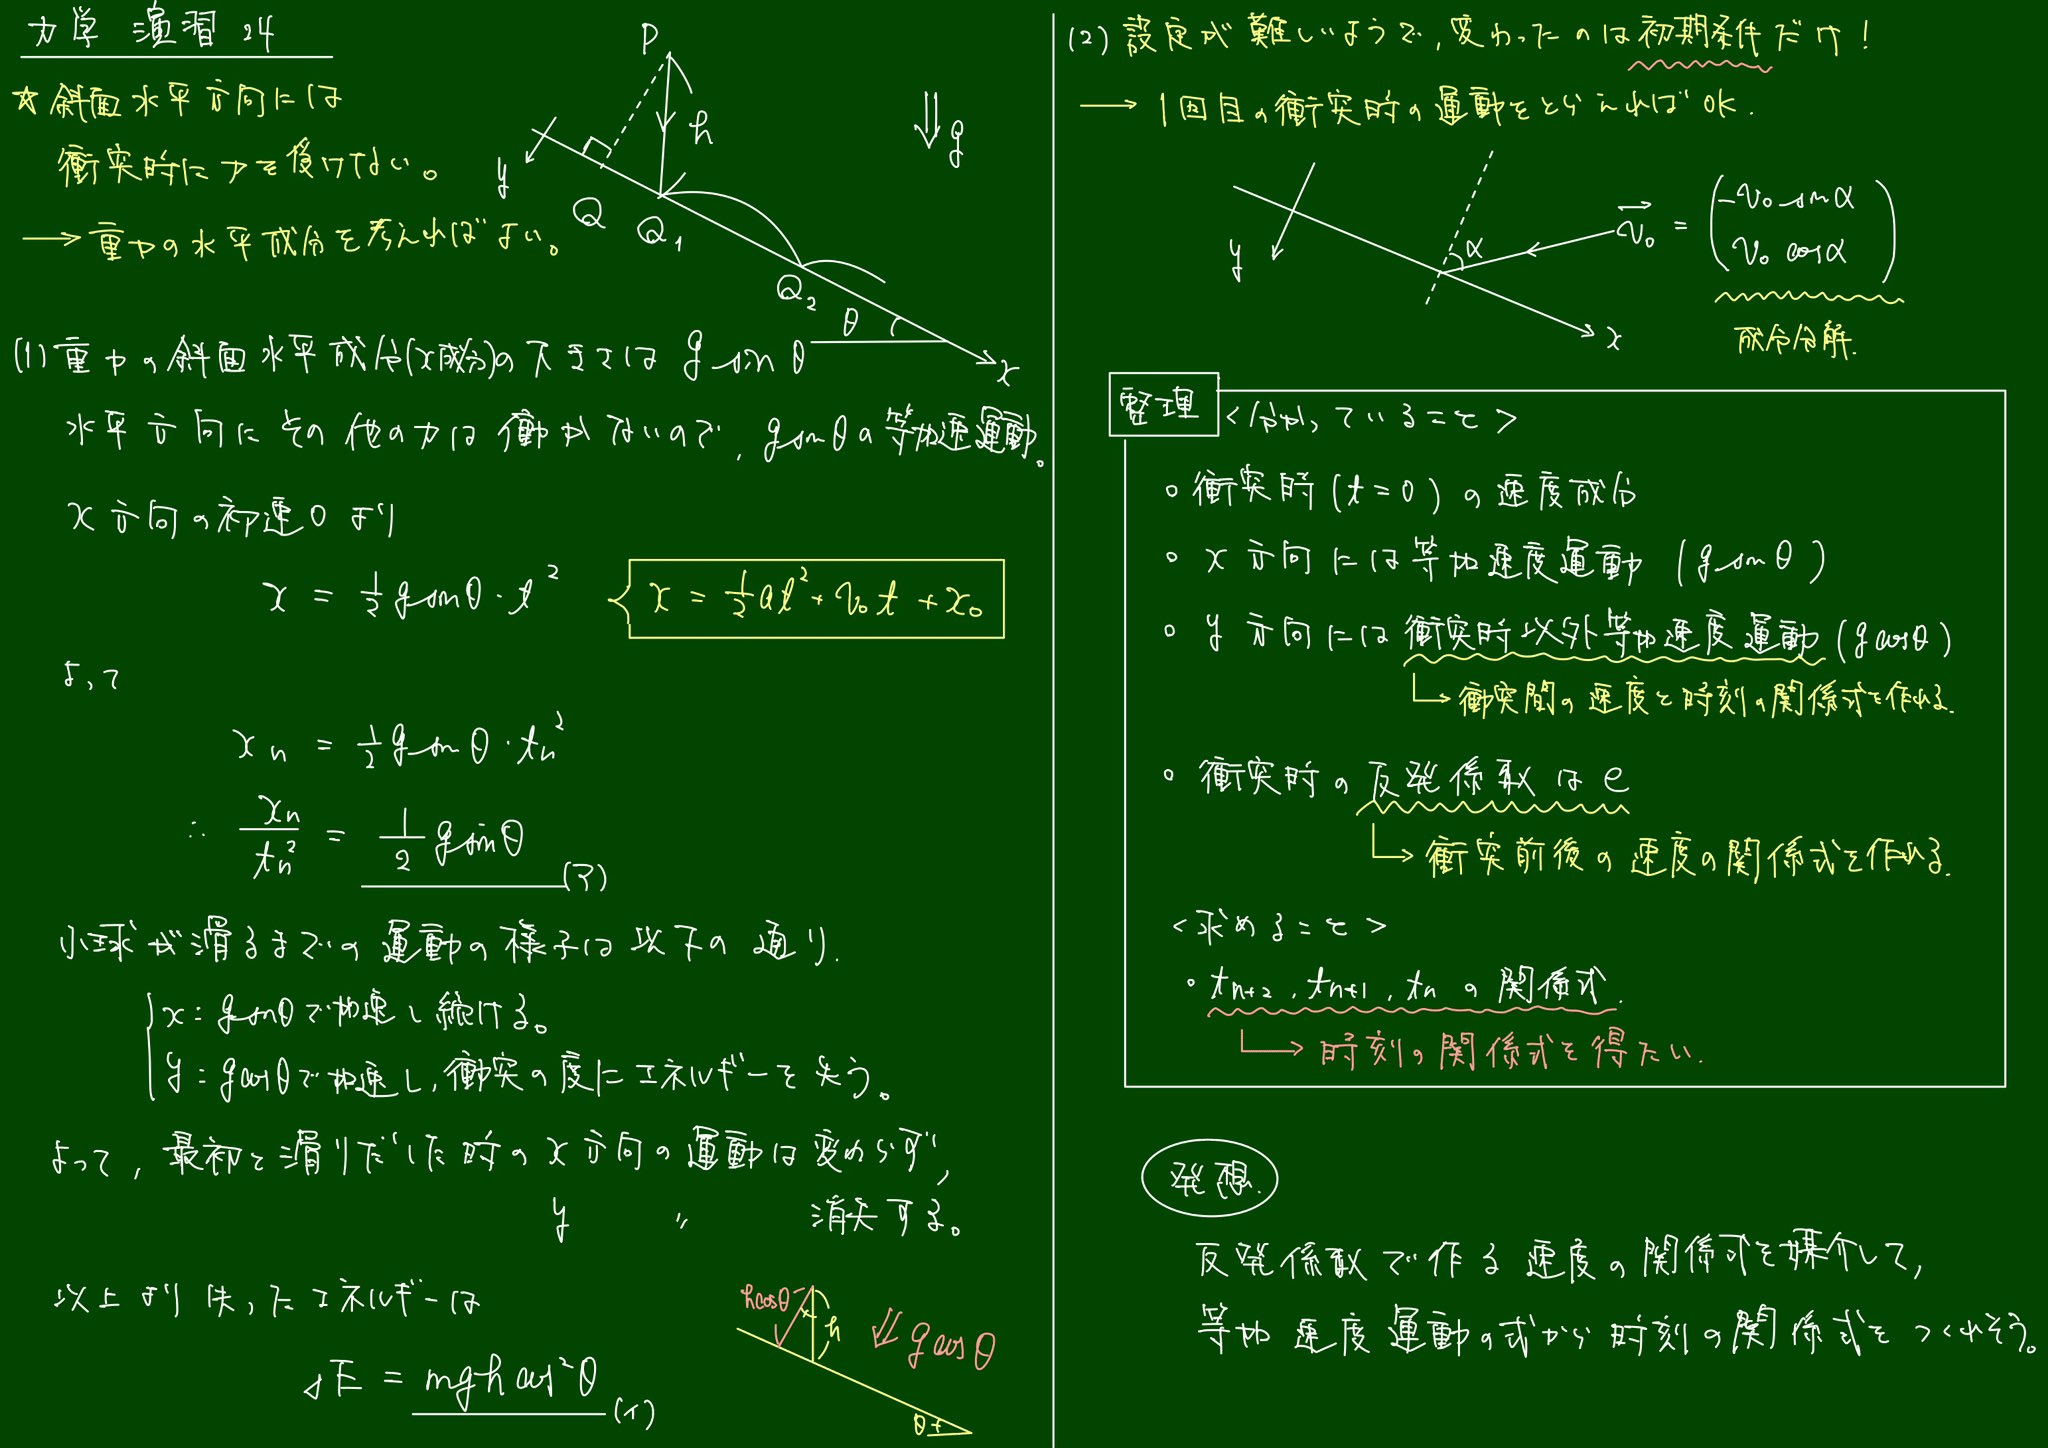 力学 演習 24
☆ 斜面水平方向には
衝突時に力を受けない。
→ 重力の水平成分を考えればよい。
P
h
g
y
Q
Q₁
Q₂
θ
x
(1) 重力の斜面水平成分(x成分)の大きさは g sin θ
水平方向にその他の力は働かないので, g sin θ の等加速運動。
x 方向の初速 0 より
x = 1/2 g sin θ · t²
x = 1/2 at² + v₀t + x₀
よって
xₙ = 1/2 g sin θ · tₙ²
∴ xₙ/tₙ² = 1/2 g sin θ (ア)
小球が滑るまでの運動の様子は以下の通り.
x : g sin θ で加速し続ける。
y : g cos θ で加速し, 衝突の度にエネルギーを失う。
よって, 最初と滑りだした時の x 方向の運動は変わらず,
y 〃 消失する。
以上より失ったエネルギーは
ΔE = mgh cos² θ (イ)
h cos θ
h
g cos θ
θ
(2) 設定が難しいようで, 変わったのは初期条件だけ!
→ 1回目の衝突時の運動をとらえればOK.
y
α
v₀ = (-v₀ sin α
v₀ cos α)
x
成分分解.
整理
<分かっていること>
○ 衝突時 (t = 0) の速度成分
○ x 方向には等加速度運動 (g sin θ)
○ y 方向には衝突時以外等加速度運動 (g cos θ)
→ 衝突間の速度と時刻の関係式を作れる.
○ 衝突時の反発係数は e
→ 衝突前後の速度の関係式を作れる.
<求めること>
○ tₙ₊₂, tₙ₊₁, tₙ の関係式.
→ 時刻の関係式を得たい.
発想.
反発係数で作る速度の関係式を媒介して,
等加速度運動の式から時刻の関係式をつくれそう。